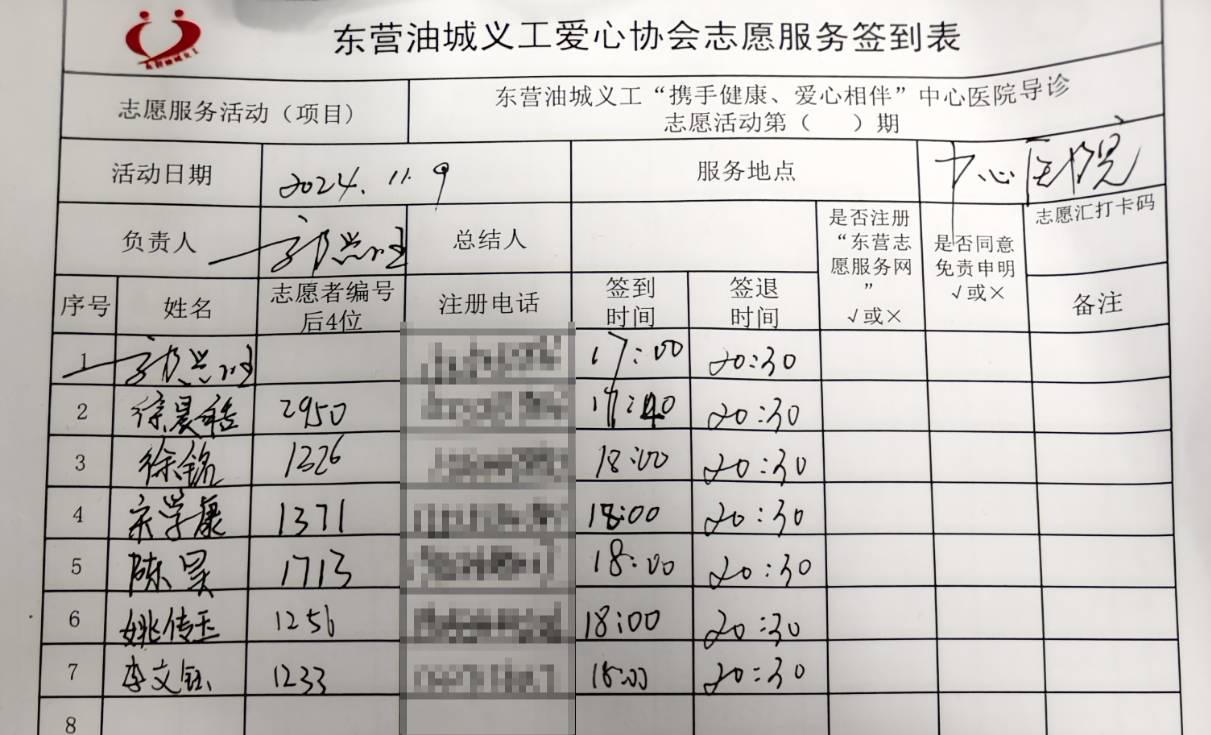 东营油城义工爱心协会志愿服务签到表
志愿服务活动（项目） 东营油城义工“携手健康、爱心相伴”中心医院导诊
志愿活动第（ ）期
活动日期 2024.11.9 服务地点 中心医院
负责人 总结人 是否注册
“东营志
愿服务网
”
√或× 是否同意
免责申明
√或× 志愿汇打卡码
序号 姓名 志愿者编号
后4位 注册电话 签到
时间 签退
时间 备注
1 17:00 20:30
2 徐晨皓 2950 17:40 20:30
3 徐铭 1326 18:00 20:30
4 宋学康 1371 18:00 20:30
5 陈昊 1713 18:00 20:30
6 姚传玉 1256 18:00 20:30
7 李文钰 1233 18:00 20:30
8